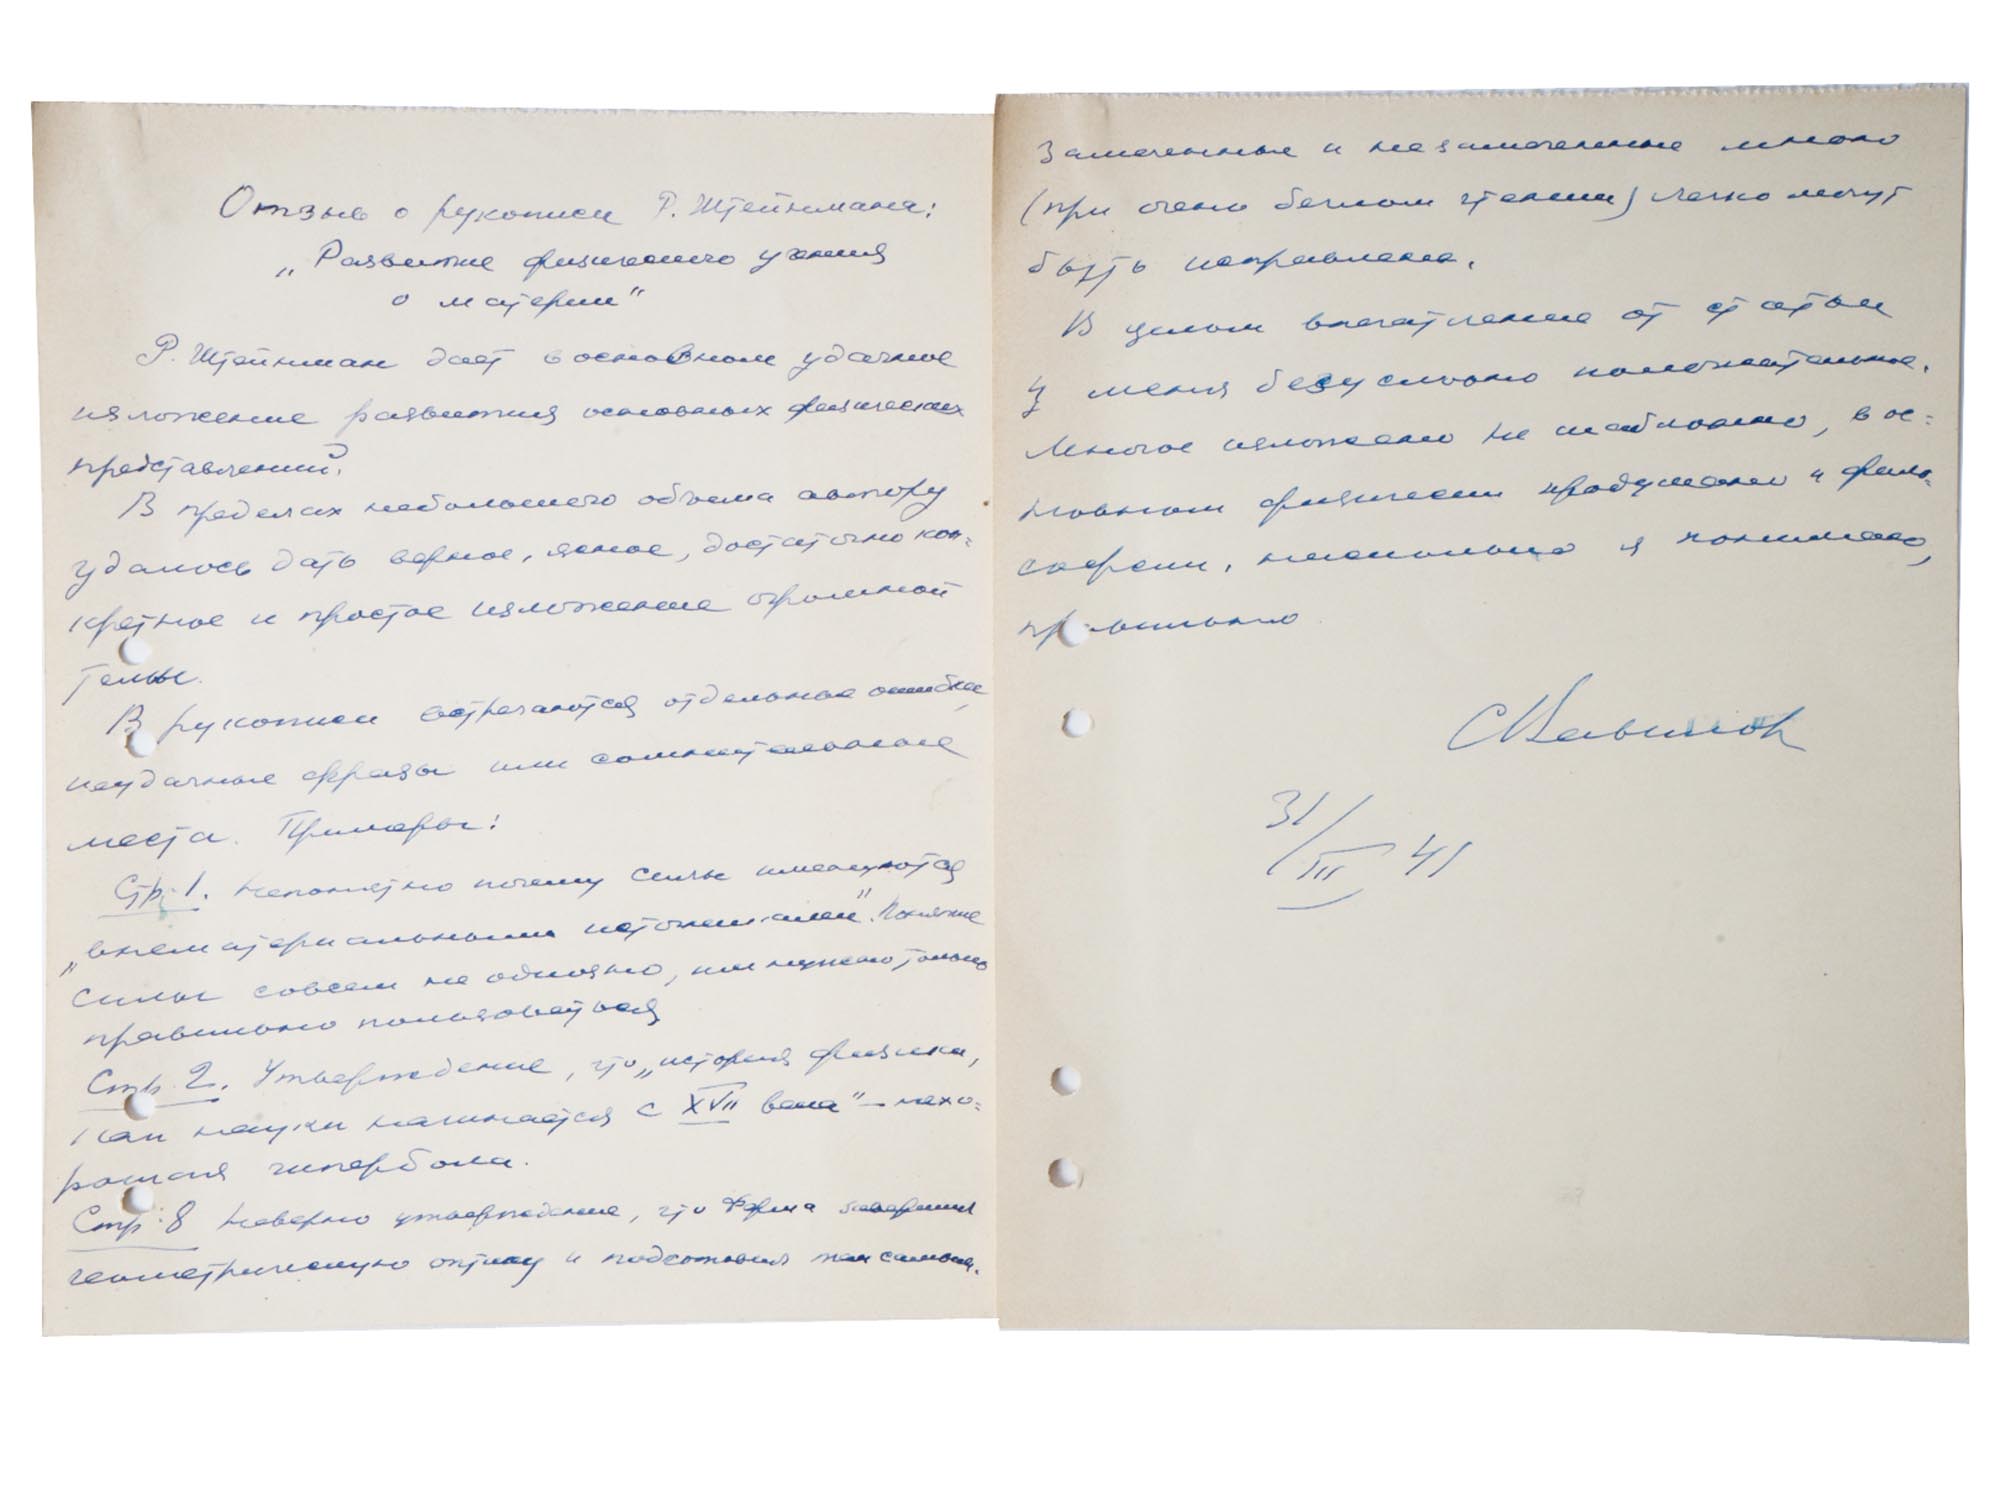 Отзыв о рукописи Р. Штейнмана:
„Развитие физического учения
о материи"
Р. Штейнман дает в основном удачное
изложение развития основных физических
представлений.
В пределах небольшого объема автору
удалось дать верное, ясное, достаточно кон=
кретное и простое изложение огромной
темы.
В рукописи встречаются отдельные ошибки,
неудачные фразы или сомнительные
места. Примеры:
Стр. 1. Непонятно почему силы именуются
„внематериальными источниками". Понятие
силы совсем не одиозно, им нужно только
правильно пользоваться
Стр. 2. Утверждение, что „история физики,
как науки начинается с XVII века" – нехо=
рошая гипербола.
Стр. 8 Неверно утверждение, что Ферма завершил
геометрическую оптику и подготовил тем самым
Замеченные и незамеченные мною
(при очень беглом чтении) легко могут
быть исправлены.
В целом впечатление от статьи
у меня безусловно положительное.
Многое изложено не шаблонно, в ос=
новном физически продумано и фило=
софски, насколько я понимаю,
правильно.
С Вавилов
31/III 41